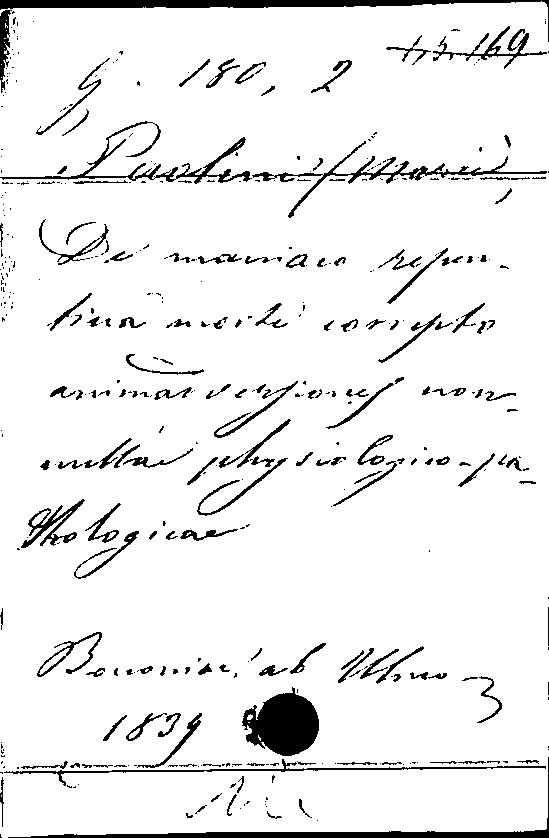 1,5.169
G. 180, 2
Paolini / Marii,
De maniaco repen-
tina morte correpto
animadversiones non-
nullae physiologico-pa-
thologicae
Bononiae, ab Ulmo
1839